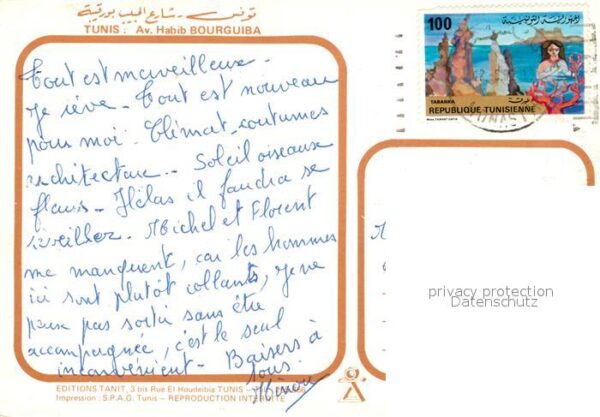 تونس - شارع الحبيب بورقيبة
TUNIS : Av. Habib BOURGUIBA
Tout est merveilleux -
Je rêve - Tout est nouveau
pour moi - Climat - coutumes
architecture - Soleil oiseaux
fleurs - Hélas il faudra se
réveiller - Michel et Florent
me manquent, car les hommes
ici sont plutôt collants, je ne
peux pas sortir sans être
accompagnée, c'est le seul
inconvénient - Baisers à
tous.
EDITIONS TANIT, 3 bis Rue El Houdeibia TUNIS
Impression : S.P.A.G. Tunis - REPRODUCTION INTERDITE
100
الجمهورية التونسية
TABARKA
طبرقة
REPUBLIQUE-TUNISIENNE
privacy protection
Datenschutz